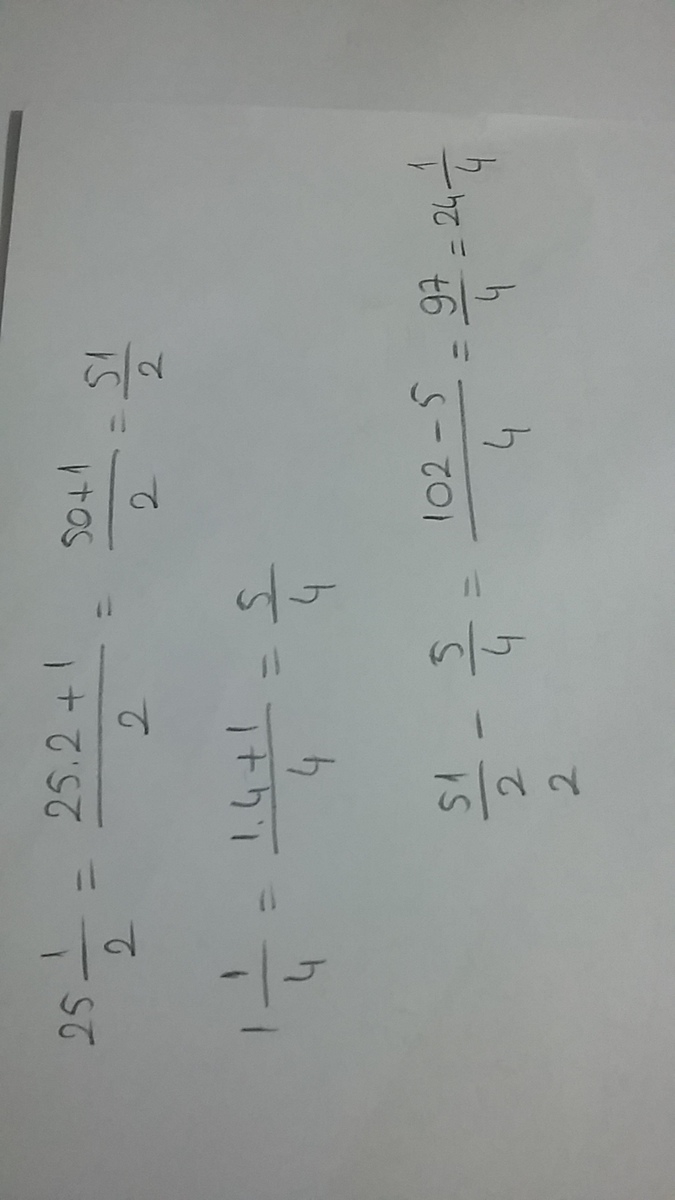 25 1/2 = 25.2+1/2 = 50+1/2 = 51/2
1 1/4 = 1.4+1/4 = 5/4
51/2 - 5/4 = 102-5/4 = 97/4 = 24 1/4
2